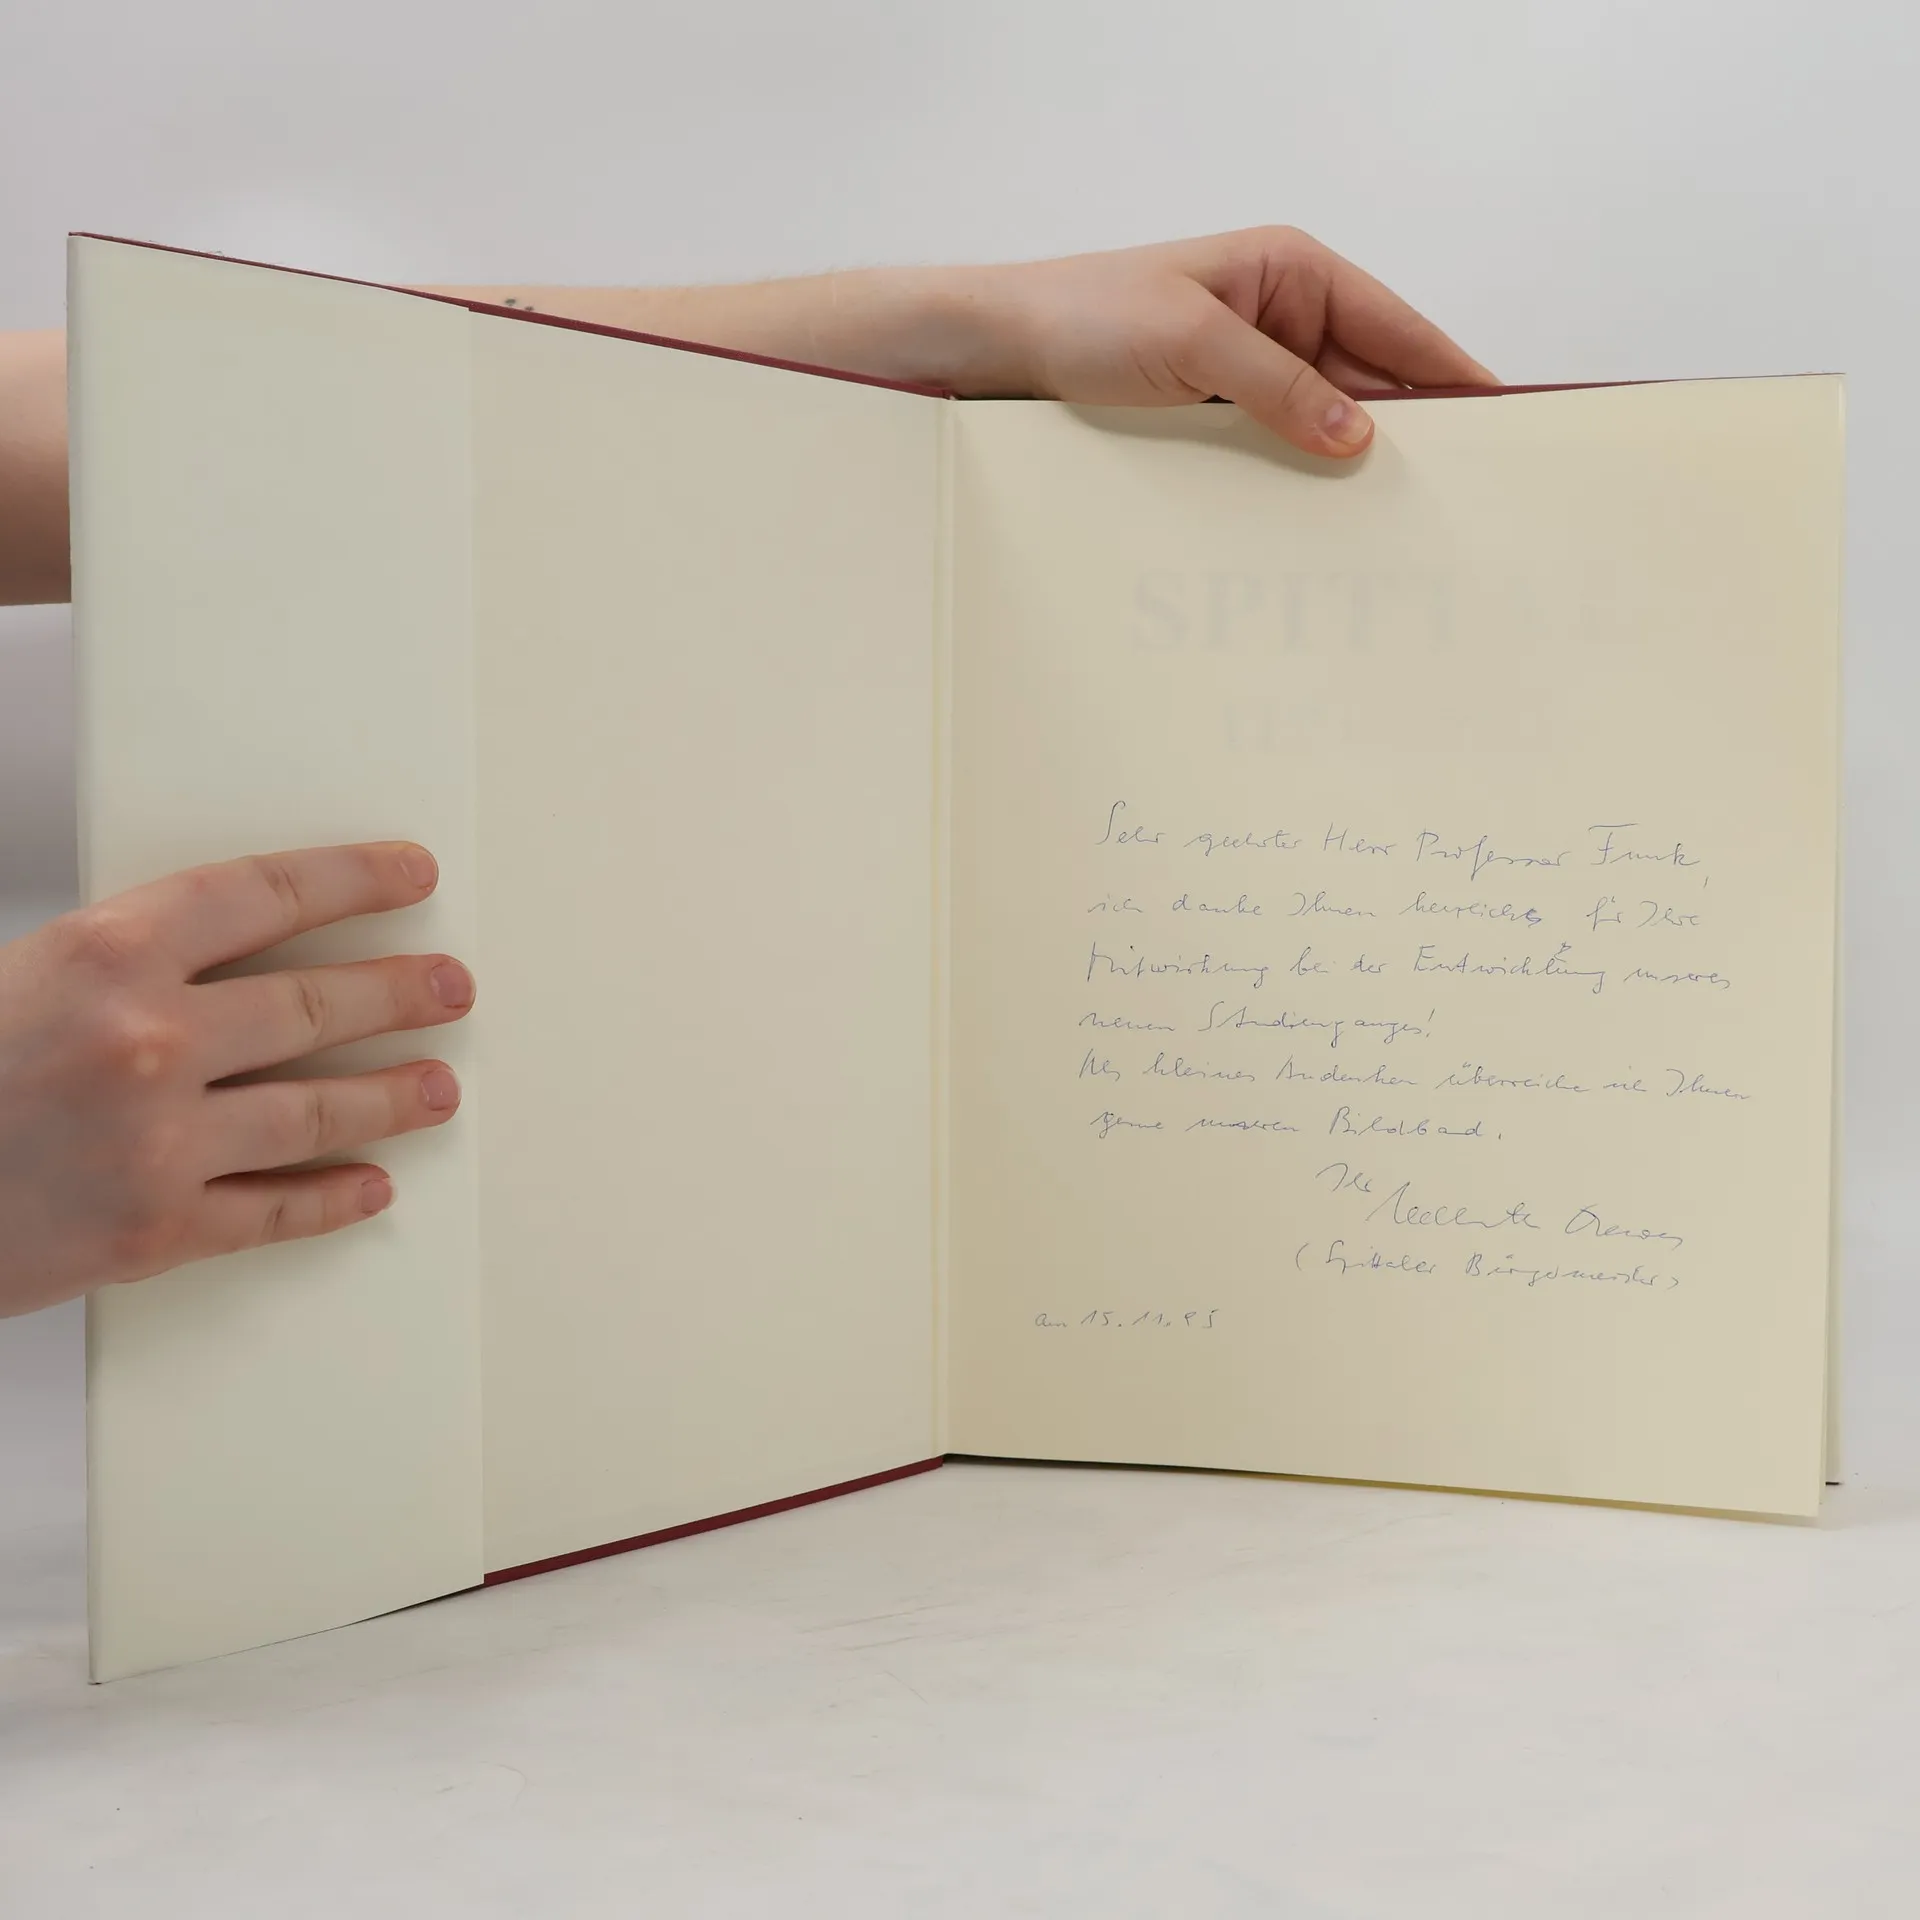 SPITT
Sehr geehrter Herr Professor Funk,
ich danke Ihnen herzlichs für Ihre
Mitwirkung bei der Entwicklung unseres
neuen Studienganges!
Als kleines Andenken überreiche ich Ihnen
gerne unseren Bildband.
Ihr
(Spittaler Bürgermeister)
am 15.11.95